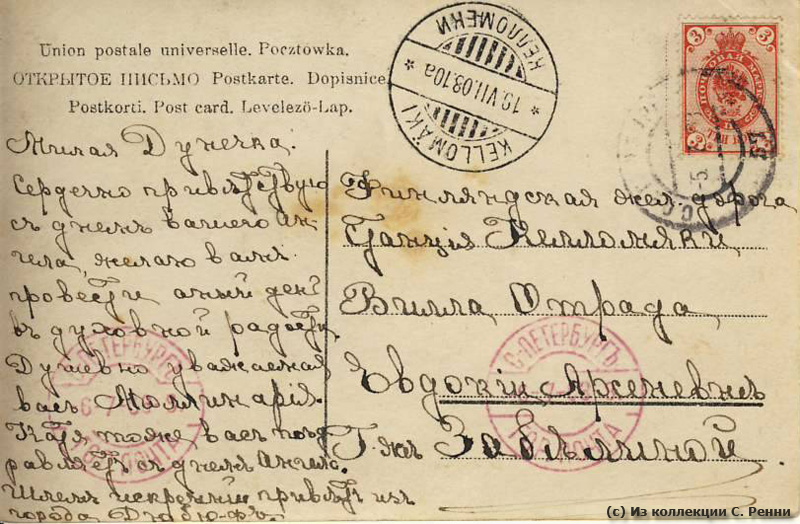 Union postale universelle. Pocztówka.
ОТКРЫТОЕ ПИСЬМО Postkarte. Dopisnice.
Postkorti. Post card. Levelező-Lap.
KELLOMÄKI
19.VII.08.10a
КЕЛЛОМЕКИ
3 3
ПОЧТОВАЯ МАРКА
3 3
Милая Дунечка.
Сердечно приветствую
съ днемъ вашего Ан
гела, желаю вамъ
провести
въ духовной радости
Душевно уважаемая
васъ Моллинарія.
Катя тоже васъ поз
равляетъ съ днемъ Ангела.
Шлемъ искренній приветъ изъ
города
Финляндская жел. дорога
Станція Келломяки
Вилла Отрада
Евдокіи Арсеневнѣ
Г-жѣ Забѣлиной
С-ПЕТЕРБУРГЪ
ПОЧТА
С-ПЕТЕРБУРГЪ
ПОЧТА
(с) Из коллекции С. Ренни